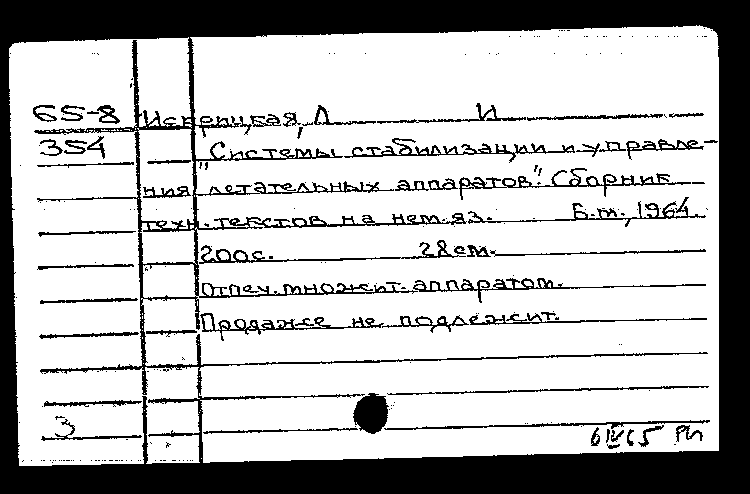 65-8 Искрицкая, Л И
354 "Системы стабилизации и управле-
ния летательных аппаратов". Сборник
техн. текстов на нем. яз. Б.м., 1964.
200с. 28см.
Отпеч. множит. аппаратом.
Продаже не подлежит.
3
6IV65